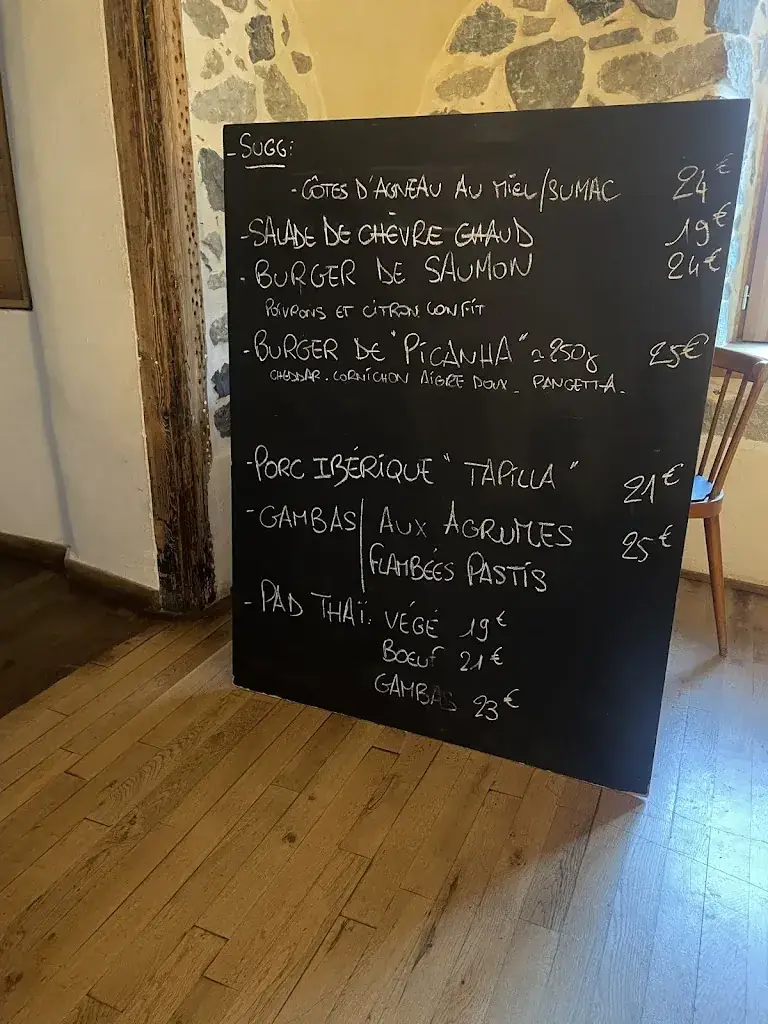 - SUGG:
- CÔTES D'AGNEAU AU MIEL/SUMAC 24€
- SALADE DE CHÈVRE CHAUD 19€
- BURGER DE SAUMON 24€
POIVRONS ET CITRON CONFIT
- BURGER DE "PICANHA" ~ 250g 25€
CHEDDAR . CORNICHON AIGRE DOUX . PANCETTA .
- PORC IBÉRIQUE "TAPILLA" 21€
- GAMBAS | AUX AGRUMES 25€
FLAMBÉES PASTIS
- PAD THAÏ: VÉGÉ 19€
BOEUF 21€
GAMBAS 23€